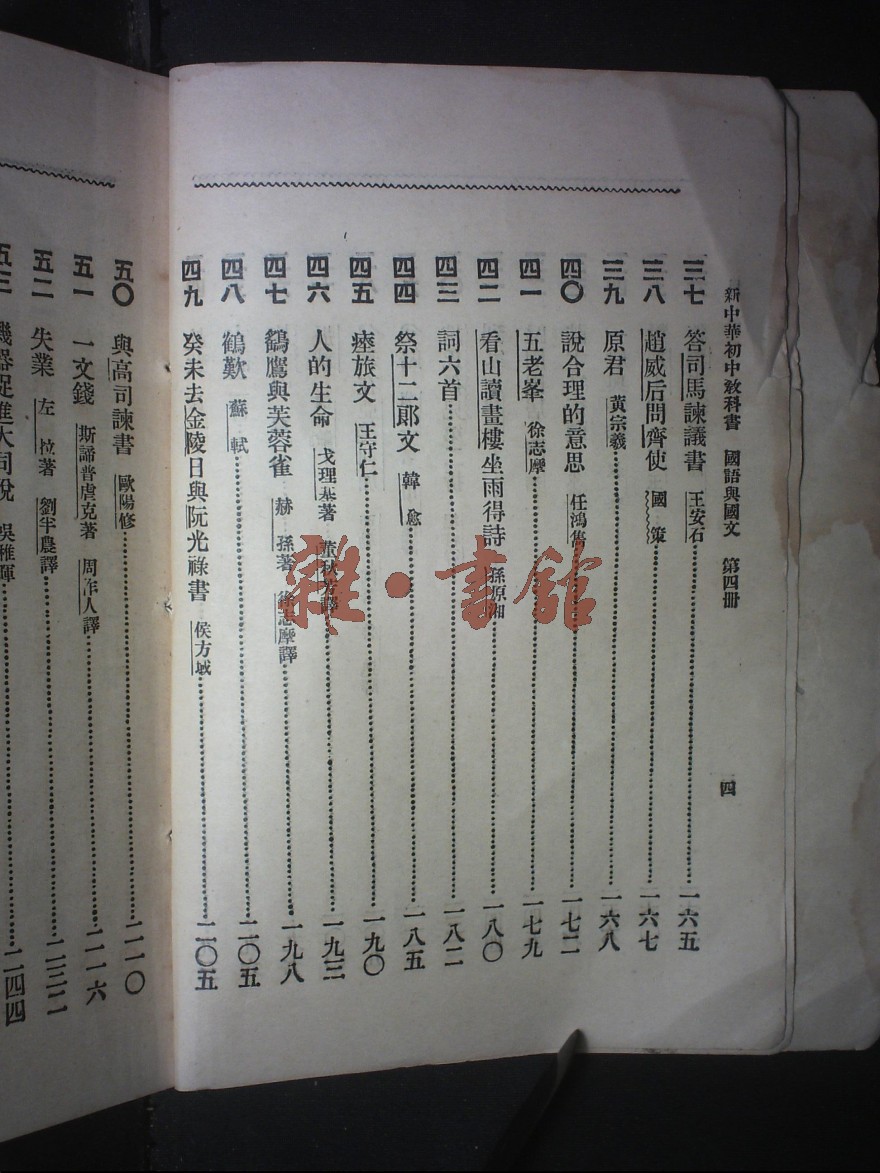 新中華初中教科書 國語與國文 第四冊
四
三七 答司馬諫議書 王安石 一六五
三八 趙威后問齊使 國策 一六七
三九 原君 黃宗羲 一六八
四〇 說合理的意思 任鴻雋 一七二
四一 五老峯 徐志摩 一七九
四二 看山讀畫樓坐雨得詩 孫原湘 一八〇
四三 詞六首 一八二
四四 祭十二郎文 韓愈 一八五
四五 瘞旅文 王守仁 一九〇
四六 人的生命 戈理基著 董秋芳譯 一九三
四七 鷂鷹與芙蓉雀 赫孫著 徐志摩譯 一九八
四八 鶴歎 蘇軾 二〇五
四九 癸未去金陵日與阮光祿書 侯方域 二〇五
五〇 與高司諫書 歐陽修 二一〇
五一 一文錢 斯諦普虐克著 周作人譯 二一六
五二 失業 左拉著 劉半農譯 二三二
五三 機器促進大同說 吳稚暉 二四四
雜·書館